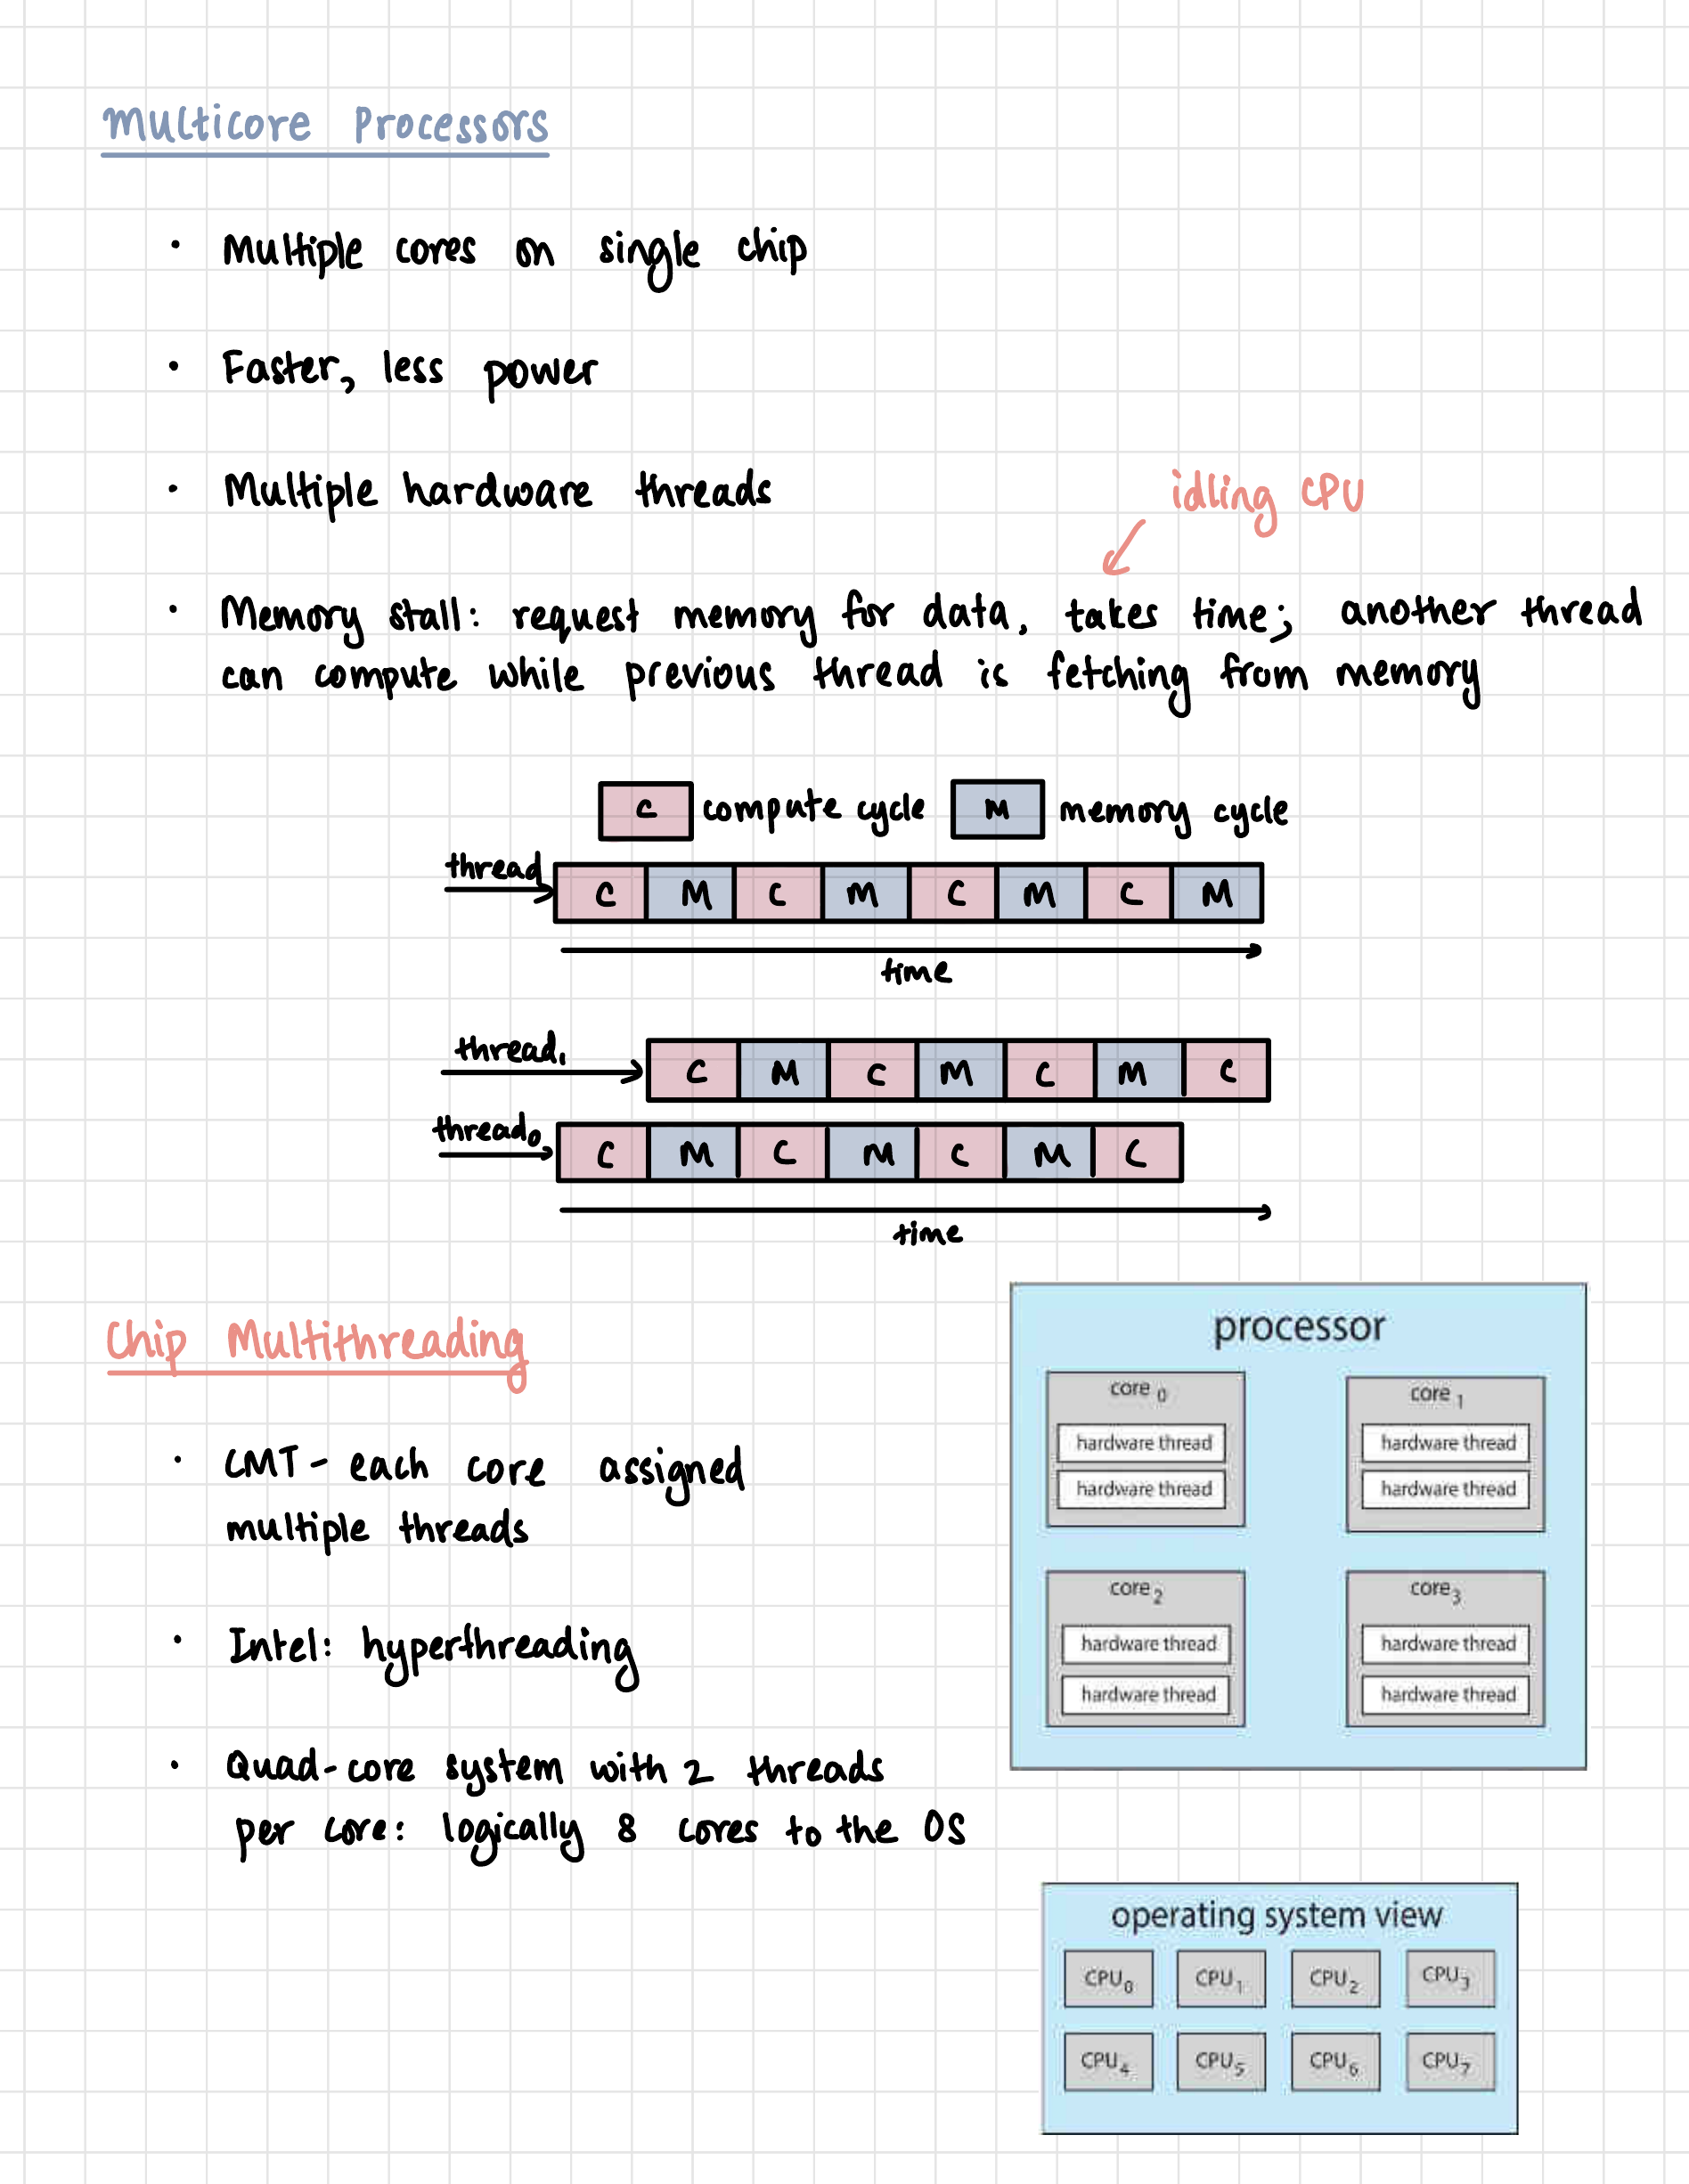 Multicore Processors
· Multiple cores on single chip
· Faster, less power
· Multiple hardware threads
idling CPU
· Memory stall: request memory for data, takes time; another thread
can compute while previous thread is fetching from memory
C compute cycle M memory cycle
thread C M C M C M C M
time
thread₁ C M C M C M C
thread₀ C M C M C M C
time
Chip Multithreading
· CMT - each core assigned
multiple threads
· Intel: hyperthreading
· Quad-core system with 2 threads
per core: logically 8 cores to the OS
processor
core 0 core 1
hardware thread hardware thread
hardware thread hardware thread
core 2 core 3
hardware thread hardware thread
hardware thread hardware thread
operating system view
CPU0 CPU1 CPU2 CPU3
CPU4 CPU5 CPU6 CPU7